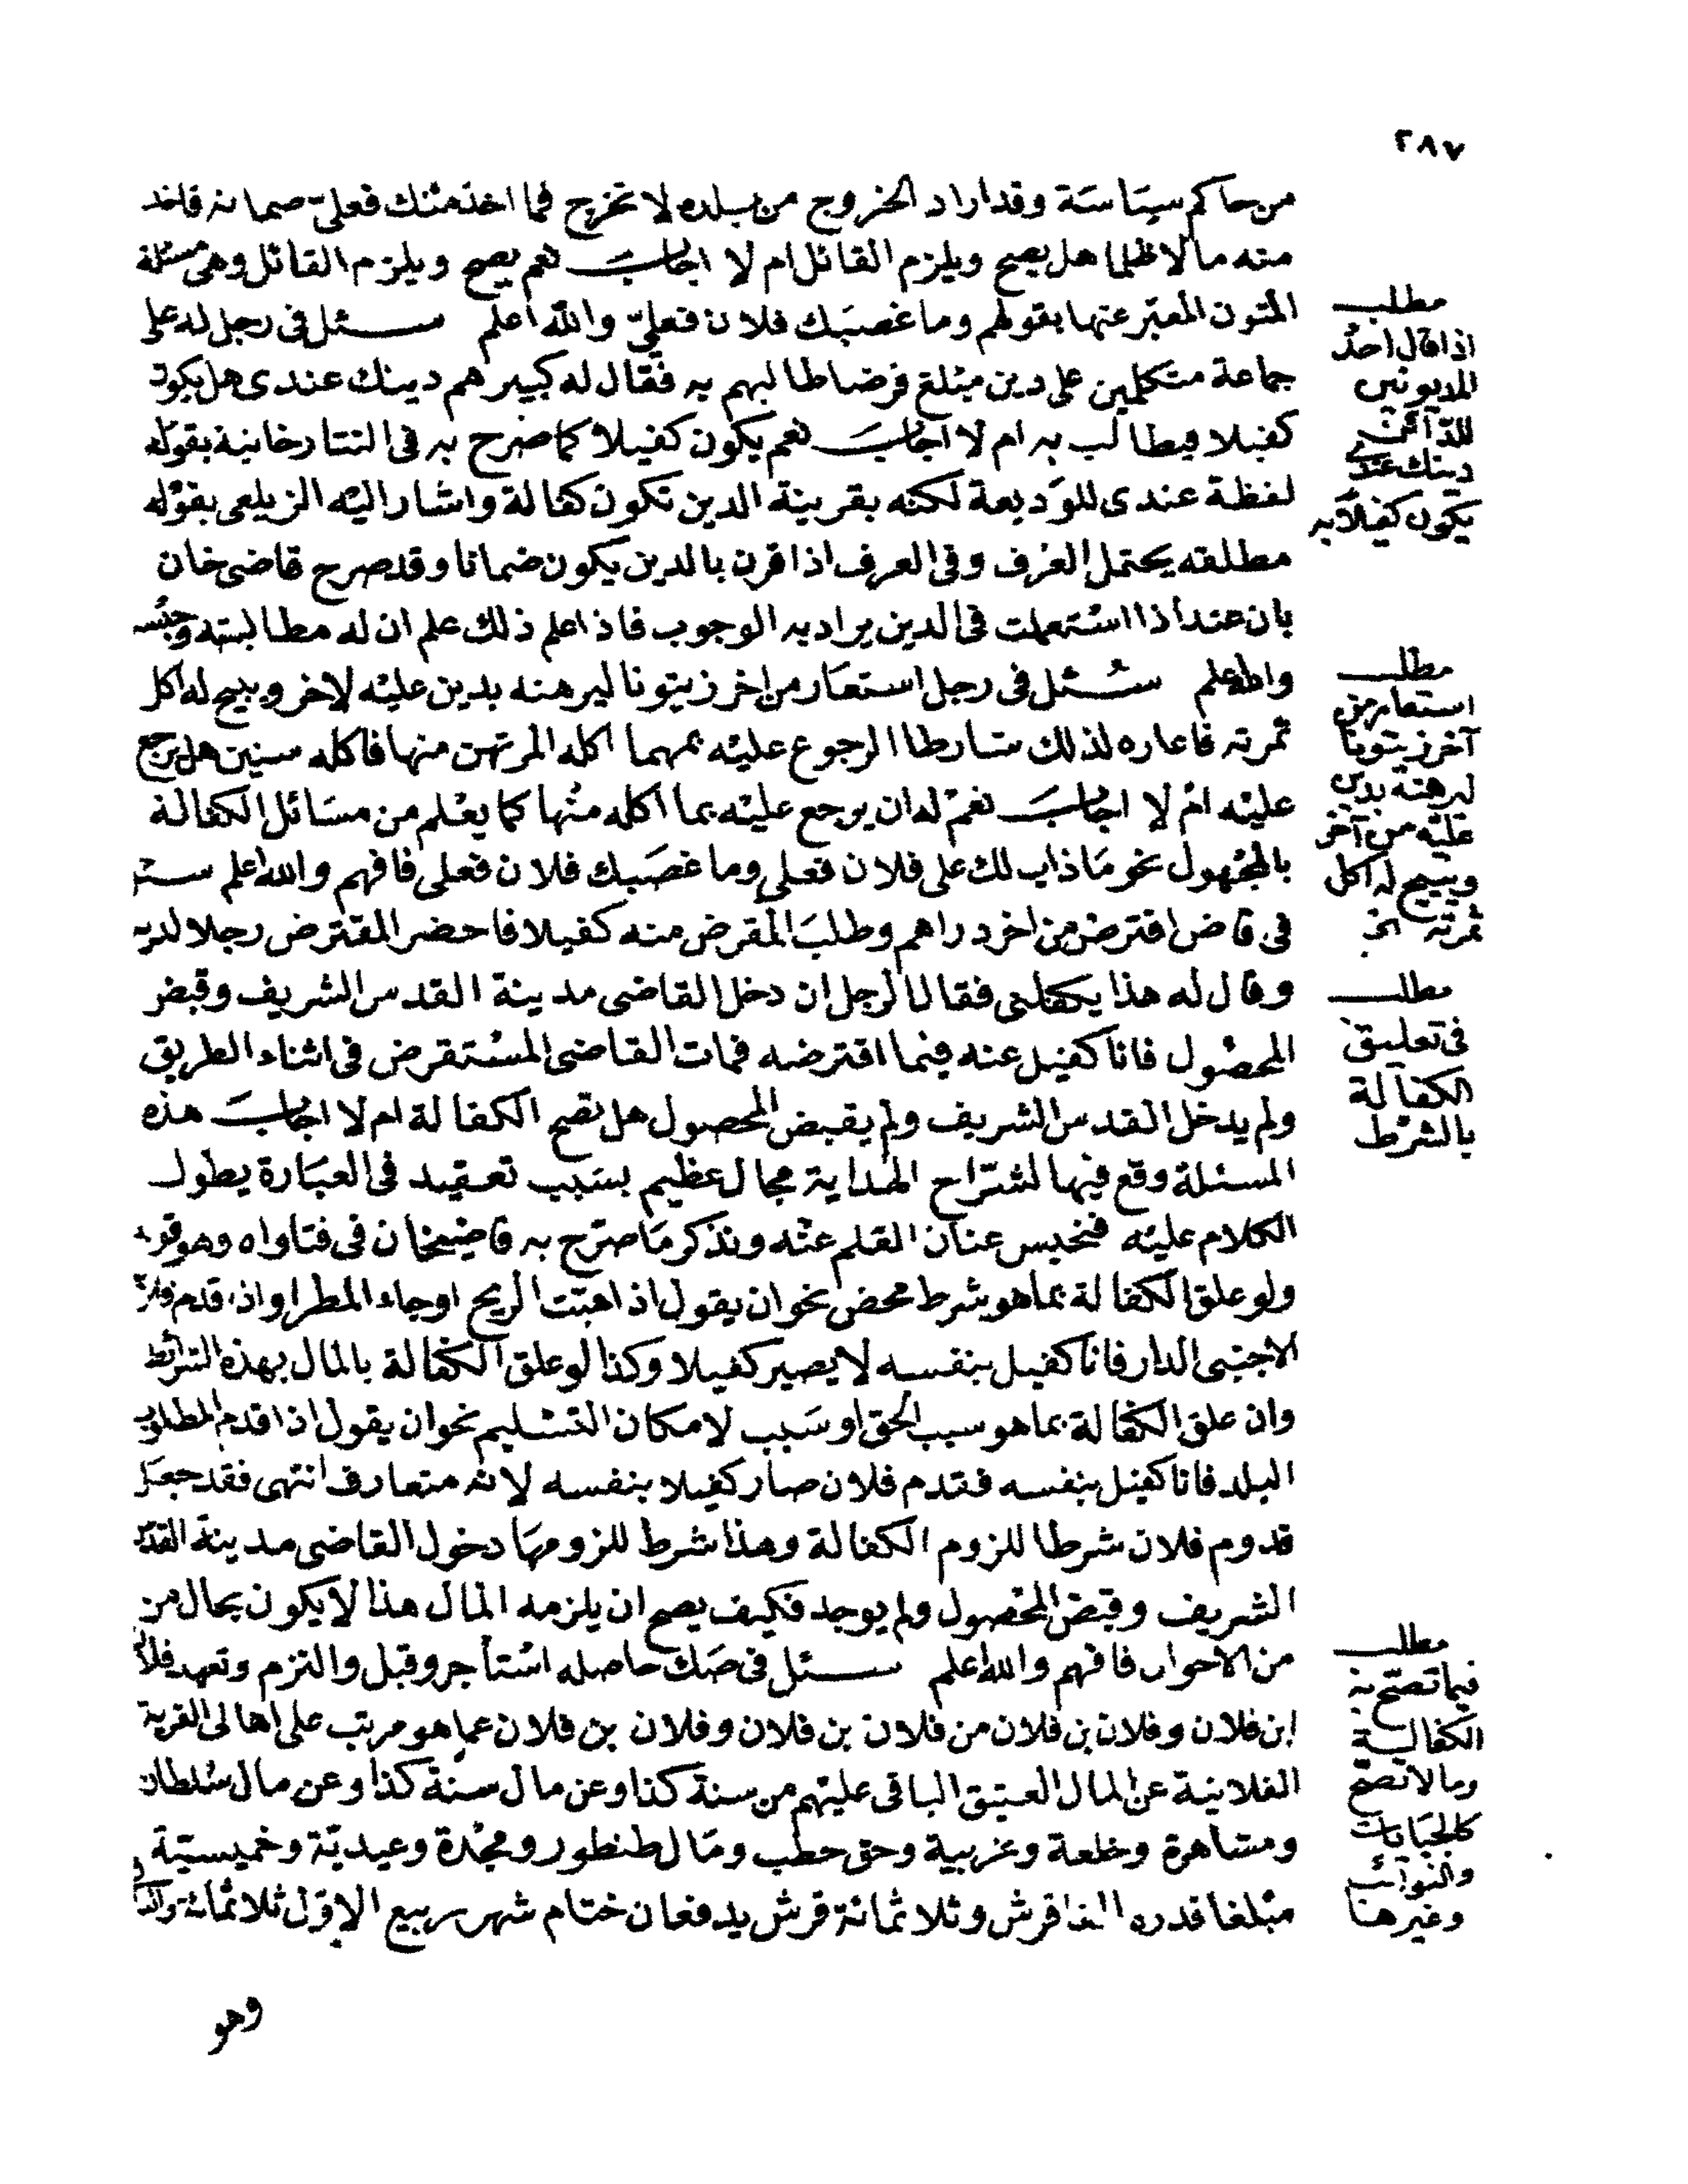 ٢٨٧
من حاكم سياسة وقد اراد الخروج من بلده لا تخرج فما اخذ منك فعليّ ضمانه فاخذ
منه مالا ظلما هل يصح ويلزم القائل ام لا اجاب نعم يصح ويلزم القائل وهى مسئلة
المتون المعبّر عنها بقولهم وما غصبك فلان فعليّ والله اعلم سئل فى رجل له على
جماعة متكلمين على دين مبلغ قرضا طالبهم به فقال له كبيرهم دينك عندى هل يكون
كفيلا فيطالب به ام لا اجاب نعم يكون كفيلا كما صرح به فى التتارخانية بقوله
لفظة عندى للوديعة لكنه بقرينة الدين تكون كفالة واشار اليه الزيلعى بقوله
مطلقه يحتمل العرف وفى العرف اذا قرن بالدين يكون ضمانا وقد صرح قاضى خان
بان عند اذا استعملت فى الدين يراد به الوجوب فاذا علم ذلك علم ان له مطالبته وحبسه
والله اعلم سئل فى رجل استعار من اخر زيتونا ليرهنه بدين عليه لاخر ويبيح له اكل
ثمرته فاعاره لذلك شارطا الرجوع عليه بمهما اكله المرتهن منها فاكله سنين هل يرجع
عليه ام لا اجاب نعم له ان يرجع عليه بما اكله منها كما يعلم من مسائل الكفالة
بالمجهول نحو ما ذاب لك على فلان فعلي وما غصبك فلان فعلى فافهم والله اعلم سئل
فى قاض اقترض من اخر دراهم وطلب المقرض منه كفيلا فاحضر المقترض رجلا لديه
وقال له هذا يكفلنى فقال الرجل ان دخل القاضى مدينة القدس الشريف وقبض
المحصول فانا كفيل عنه فيما اقترضه فمات القاضى المستقرض فى اثناء الطريق
ولم يدخل القدس الشريف ولم يقبض المحصول هل تصح الكفالة ام لا اجاب هذه
المسئلة وقع فيها لشرّاح الهداية مجال عظيم بسبب تعقيد فى العبارة يطول
الكلام عليه فنحبس عنان القلم عنه ونذكر ما صرّح به قاضيخان فى فتاواه وهو قوله
ولو علق الكفالة بما هو شرط محض نحو ان يقول اذا هبّت الريح او جاء المطر او اذا قدم فلان
الاجنبى الدار فانا كفيل بنفسه لا يصير كفيلا وكذا لو علق الكفالة بالمال بهذه الشرائط
وان علق الكفالة بما هو سبب الحق او سبب لامكان التسليم نحو ان يقول اذا قدم المطلوب
البلد فانا كفيل بنفسه فقدم فلان صار كفيلا بنفسه لانه متعارف انتهى فقد جعل
قدوم فلان شرطا للزوم الكفالة وهذا شرط للزومها دخول القاضى مدينة القدس
الشريف وقبض المحصول ولم يوجد فكيف يصح ان يلزمه المال هذا لا يكون بحال من
من الاحوال فافهم والله اعلم سئل فى صك حاصله استأجر وقبل والتزم وتعهد فلان
ابن فلان وفلان بن فلان من فلان بن فلان وفلان بن فلان عما هو مرتب على اهالى القرية
الفلانية عن المال العتيق الباقى عليهم من سنة كذا وعن مال سنة كذا وعن مال سلطان
ومشاهرة وخلعة وعزبية وحق حطب ومال طنطور ومجدة وعيديّة وخميسيّة
مبلغا قدره الفا قرش وثلاثمائة قرش يدفعان ختام شهر ربيع الاوّل ثلاثمائة
وهو
مطلب
اذا قال احد
المديونين
للدّائن
دينك عندى
يكون كفيلا به
مطلب
استعار من
آخر زيتونا
ليرهنه بدين
عليه من آخر
ويبيح له اكل
ثمرته الخ
مطلب
فى تعليق
الكفالة
بالشرط
مطلب
فيما تصحّ به
الكفالة
وما لا تصحّ
كالجبايات
والنوائب
وغيرها